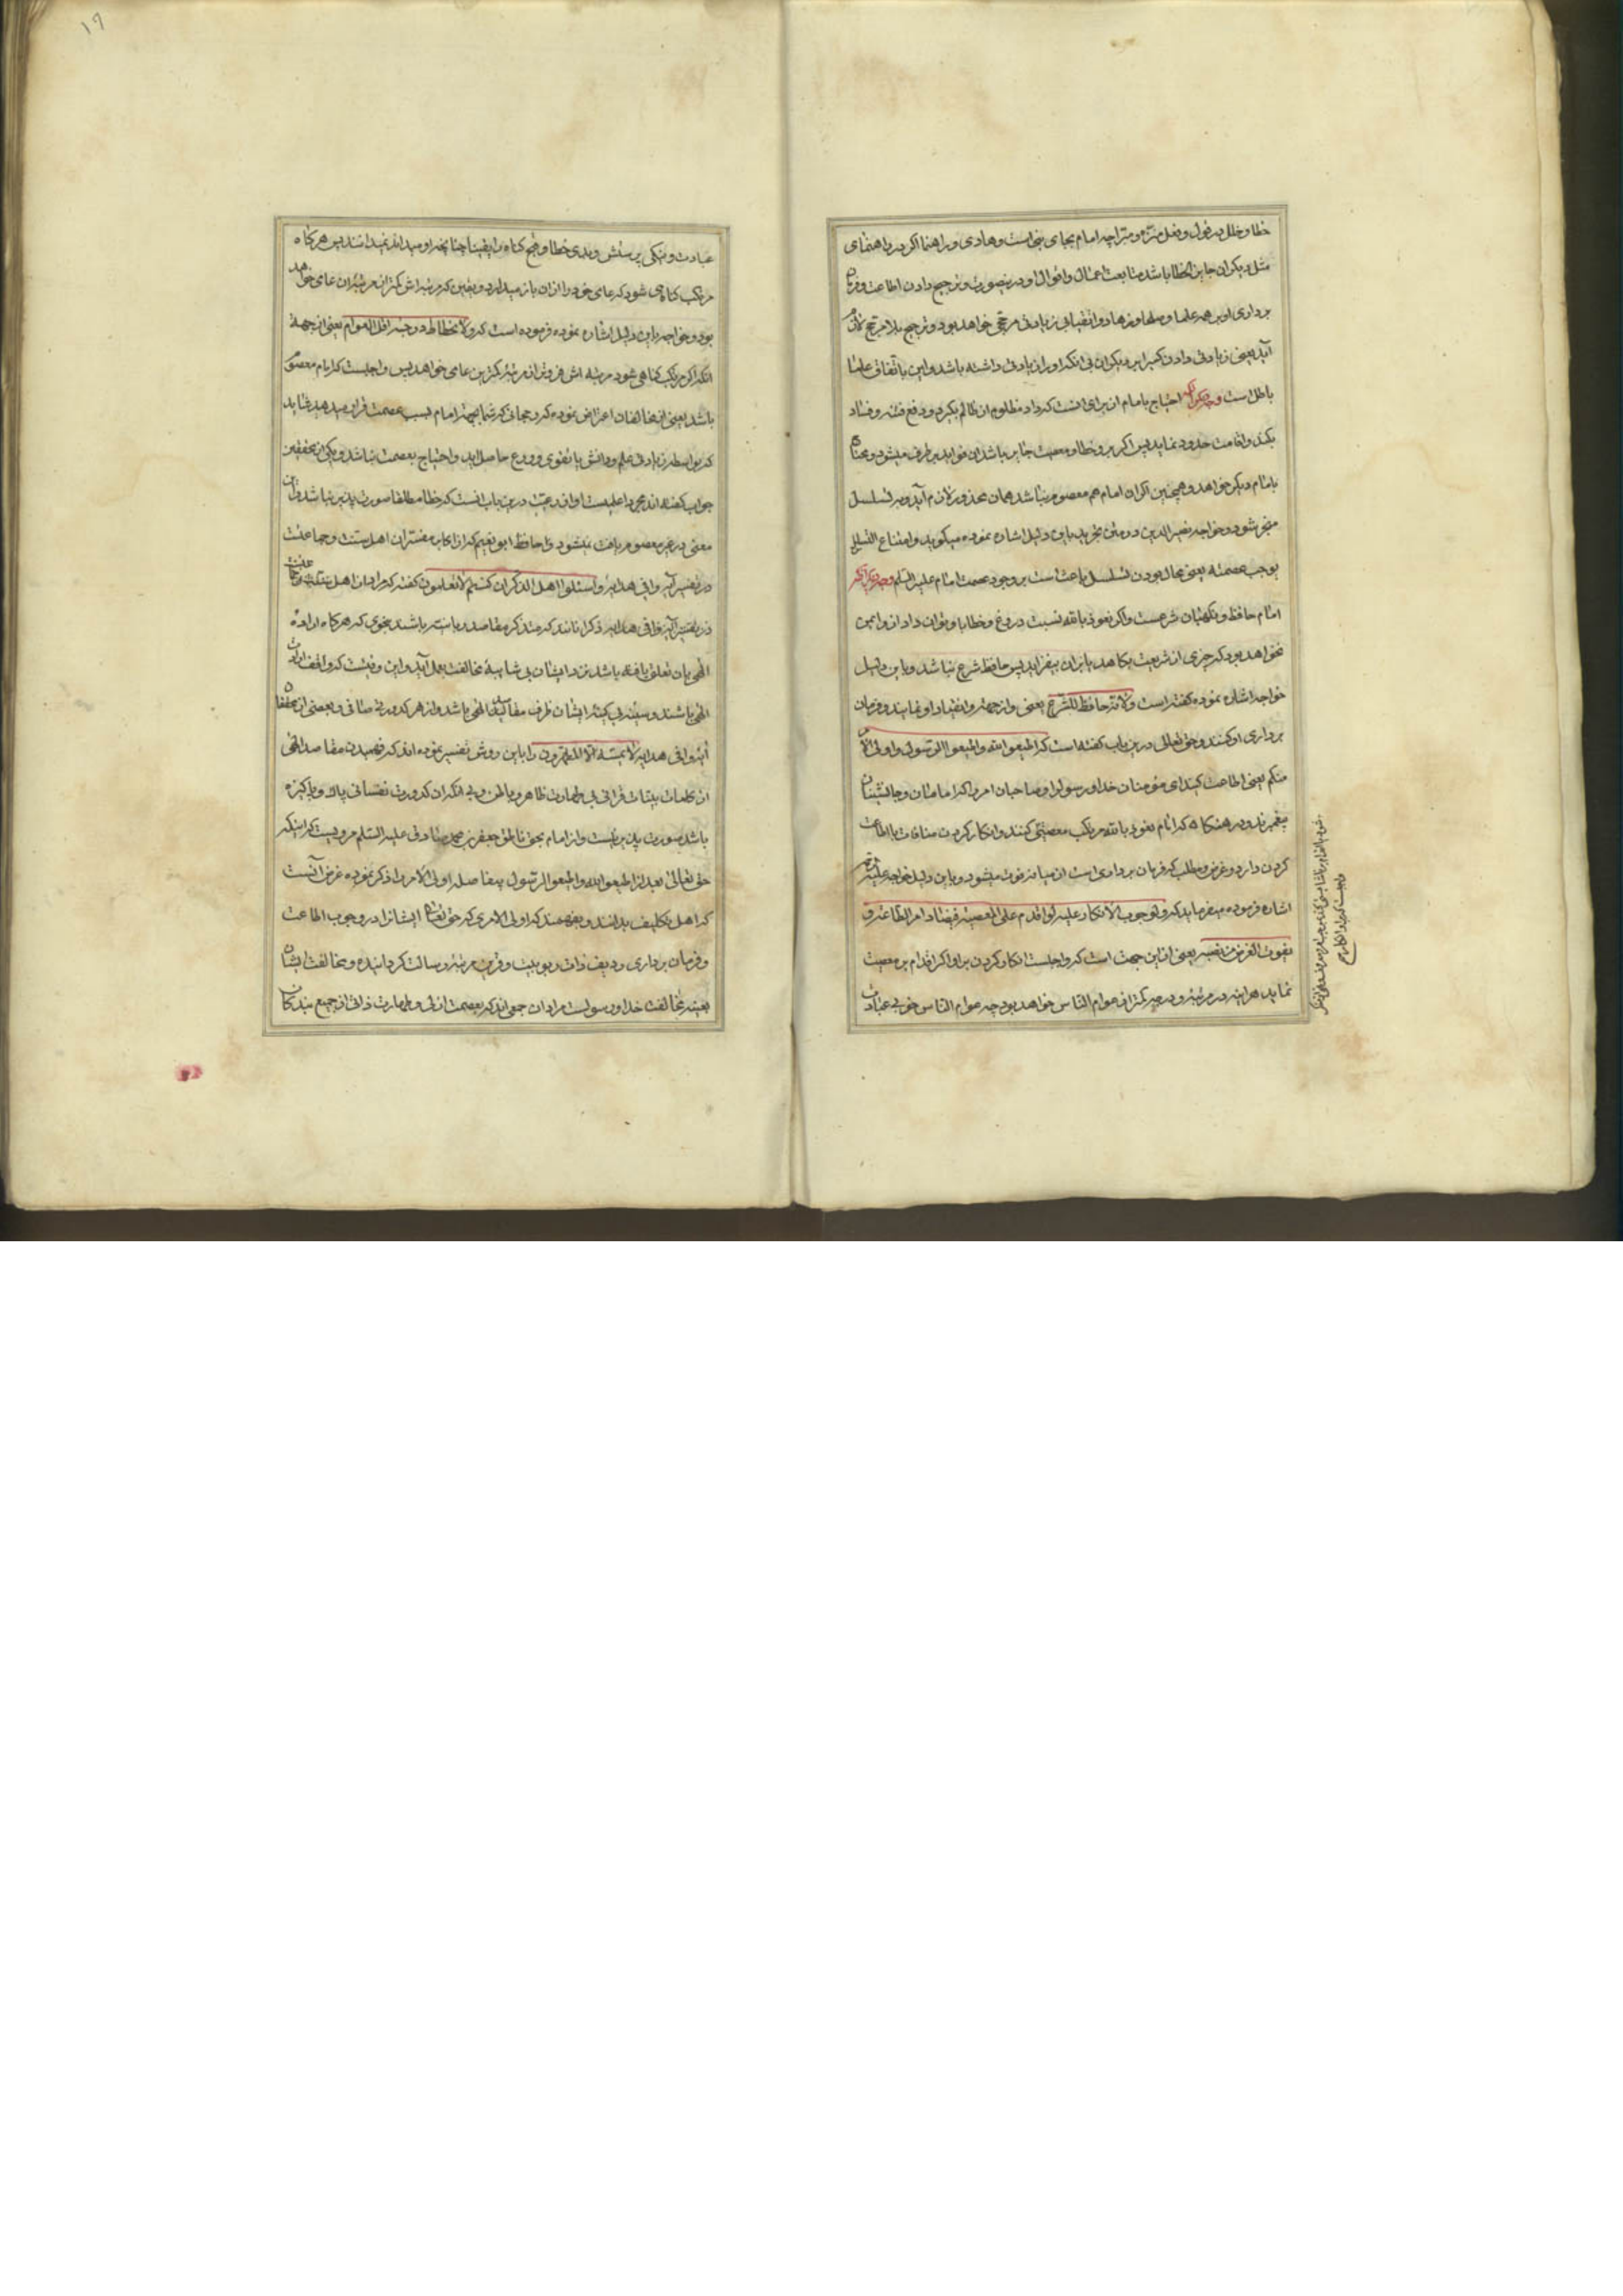 خطا و خلل در قول و فعل منزه و مبرا چه امام بجای نبی است و هادی و راهنما اگر در راهنمای
مثل دیگران جایز الخطا باشد متابعت اعمال و اقوال او درینصورت و ترجیح دادن اطاعت و فرمان
برداری او بر همه علما و صلحا و زهاد و اتقیا بی زیادتی مرجحی خواهد بود و ترجیح بلا مرجح لازم
آید یعنی زیادتی دادن کسی را بر دیگران بی انکه او را زیادتی داشته باشد و این باتفاق علما
باطل است وجه دیگر انکه احتیاج بامام از برای انست که داد مظلوم از ظالم بگیرد و دفع فتنه و فساد
بکند و اقامت حدود نماید پس اگر برو خطا و معصیت جایز باشد ان فواید برطرف میشود و محتاج
بامام دیگر خواهد و همچنین اگر ان امام هم معصوم نباشد همان محذور لازم آید و بر تسلسل
منجر شود و خواجه نصیر الدین در متن تجرید باین دلیل اشاره نموده میگوید و امتناع التسلسل
یوجب عصمته یعنی محال بودن تسلسل باعث است بر وجود عصمت امام علیه السلم وجه دیگر انکه
امام حافظ و نگهبان شرعست و اگر نعوذ بالله نسبت دروغ و خطا باو توان داد از و ایمن
نخواهد بود که چیزی از شریعت بکاهد یا بران بیفزاید پس حافظ شرع نباشد و باین دلیل
خواجه اشاره نموده گفته است و لانه حافظ للشرع یعنی و از جهة وانقیاد او نمایند و فرمان
برداری او کنند و حق تعالی درین باب گفته است که اطیعوا الله و اطیعوا الرسول و اولی الامر
منکم یعنی اطاعت کنید ای مؤمنان خدا و رسول را و صاحبان امر را که امامان و جانشینان
پیغمبرند و در هنگامی که امام نعوذ بالله مرتکب معصیتی کنند و انکار کردن منافات با اطاعت
کردن دارد و غرض و مطلب که فرمان برداری است از میانه فوت میشود و باین دلیل خواجه علیه الرحمه
اشاره فرموده میفرماید که و لوجوب الانکار علیه لو اقدم علی المعصیه فیضاد امر الطاعة و
یفوت الغرض من نصبه یعنی از این جهت است که واجبست انکار کردن بر او اگر اقدام بر معصیت
نماید هر اینه در مرتبه و درجه کمتر از عوام الناس خواهد بود چه عوام الناس خوبی عبادات
عبادت و نیکی پرستش و بدی خطا و قبح گناه را یقینا چنانچه او میداند نمیدانند پس هر گاه
مرتکب گناهی شود که عامی خود را از ان باز میدارد و یقین که مرتبه اش کمتر از مرتبه ان عامی خواهد
بود و خواجه باین دلیل اشاره نموده فرموده است که و لانحطاط درجته اقل العوام یعنی از جهة
انکه اگر مرتکب گناهی شود مرتبه اش فروتر از مرتبه کمترین عامی خواهد پس واجبست که امام معصوم
باشد بعضی از مخالفان اعتراض نموده که رجحانی که شما بجهة امام بسبب عصمت قرار میدهید شاید
که بواسطه زیادتی علم و دانش یا تقوی و ورع حاصل اید و احتیاج بعصمت نباشد و یکی از محققین
جواب گفته اند مجرد اعلمیت و اورعیت درین باب انست که خطا مطلقا صورت پذیر نباشد و این
معنی در غیر معصوم یافت نمیشود و حافظ ابو نعیم که از اکابر مفسران اهل سنت و جماعتست
در تفسیر آیه وافی هدایه و اسئلوا اهل الذکر ان کنتم لا تعلمون گفته که مراد از اهل
در تفسیر آیه وافی هدایه ذکر انانند که متذکر مقاصد ربانیه باشند بنحوی که هر گاه اراده
الهی بان تعلق یافته باشد نزد ایشان بی شایبه مخالفت بعمل آید و این وقتیست که واقف ارادات
الهی باشند و سینه بی کینه ایشان ظرف الهی باشد و از هر کدورتی صافی و بعضی از محققان
آیه وافی هدایه لا یمسه الا المطهرون را باین روش تفسیر نموده اند که فهمیدن مقاصد الهی
از کلمات بینات قرانی بی طهارت ظاهر و باطن و بی انکه از کدورت نفسانی پاک و پاکیزه
باشد صورت پذیر نیست و از امام بحق ناطق جعفر بن محمد صادق علیه السلم مرویست که اینکه
حق تعالی بعد از اطیعوا الله و اطیعوا الرسول بیفاصله اولی الامر را ذکر نموده غرض آنست
که اهل تکلیف بدانند و بفهمند که اولی الامری که حق تعالی ایشانرا در وجوب اطاعت
و فرمان برداری ردیف ذات ربوبیت و قرین مرتبه رسالت گردانیده و مخالفت ایشان
بعینه مخالفت خدا و رسولست مراد ان جمعی اند که بعصمت ازلی و طهارت ذاتی از جمیع بندگان